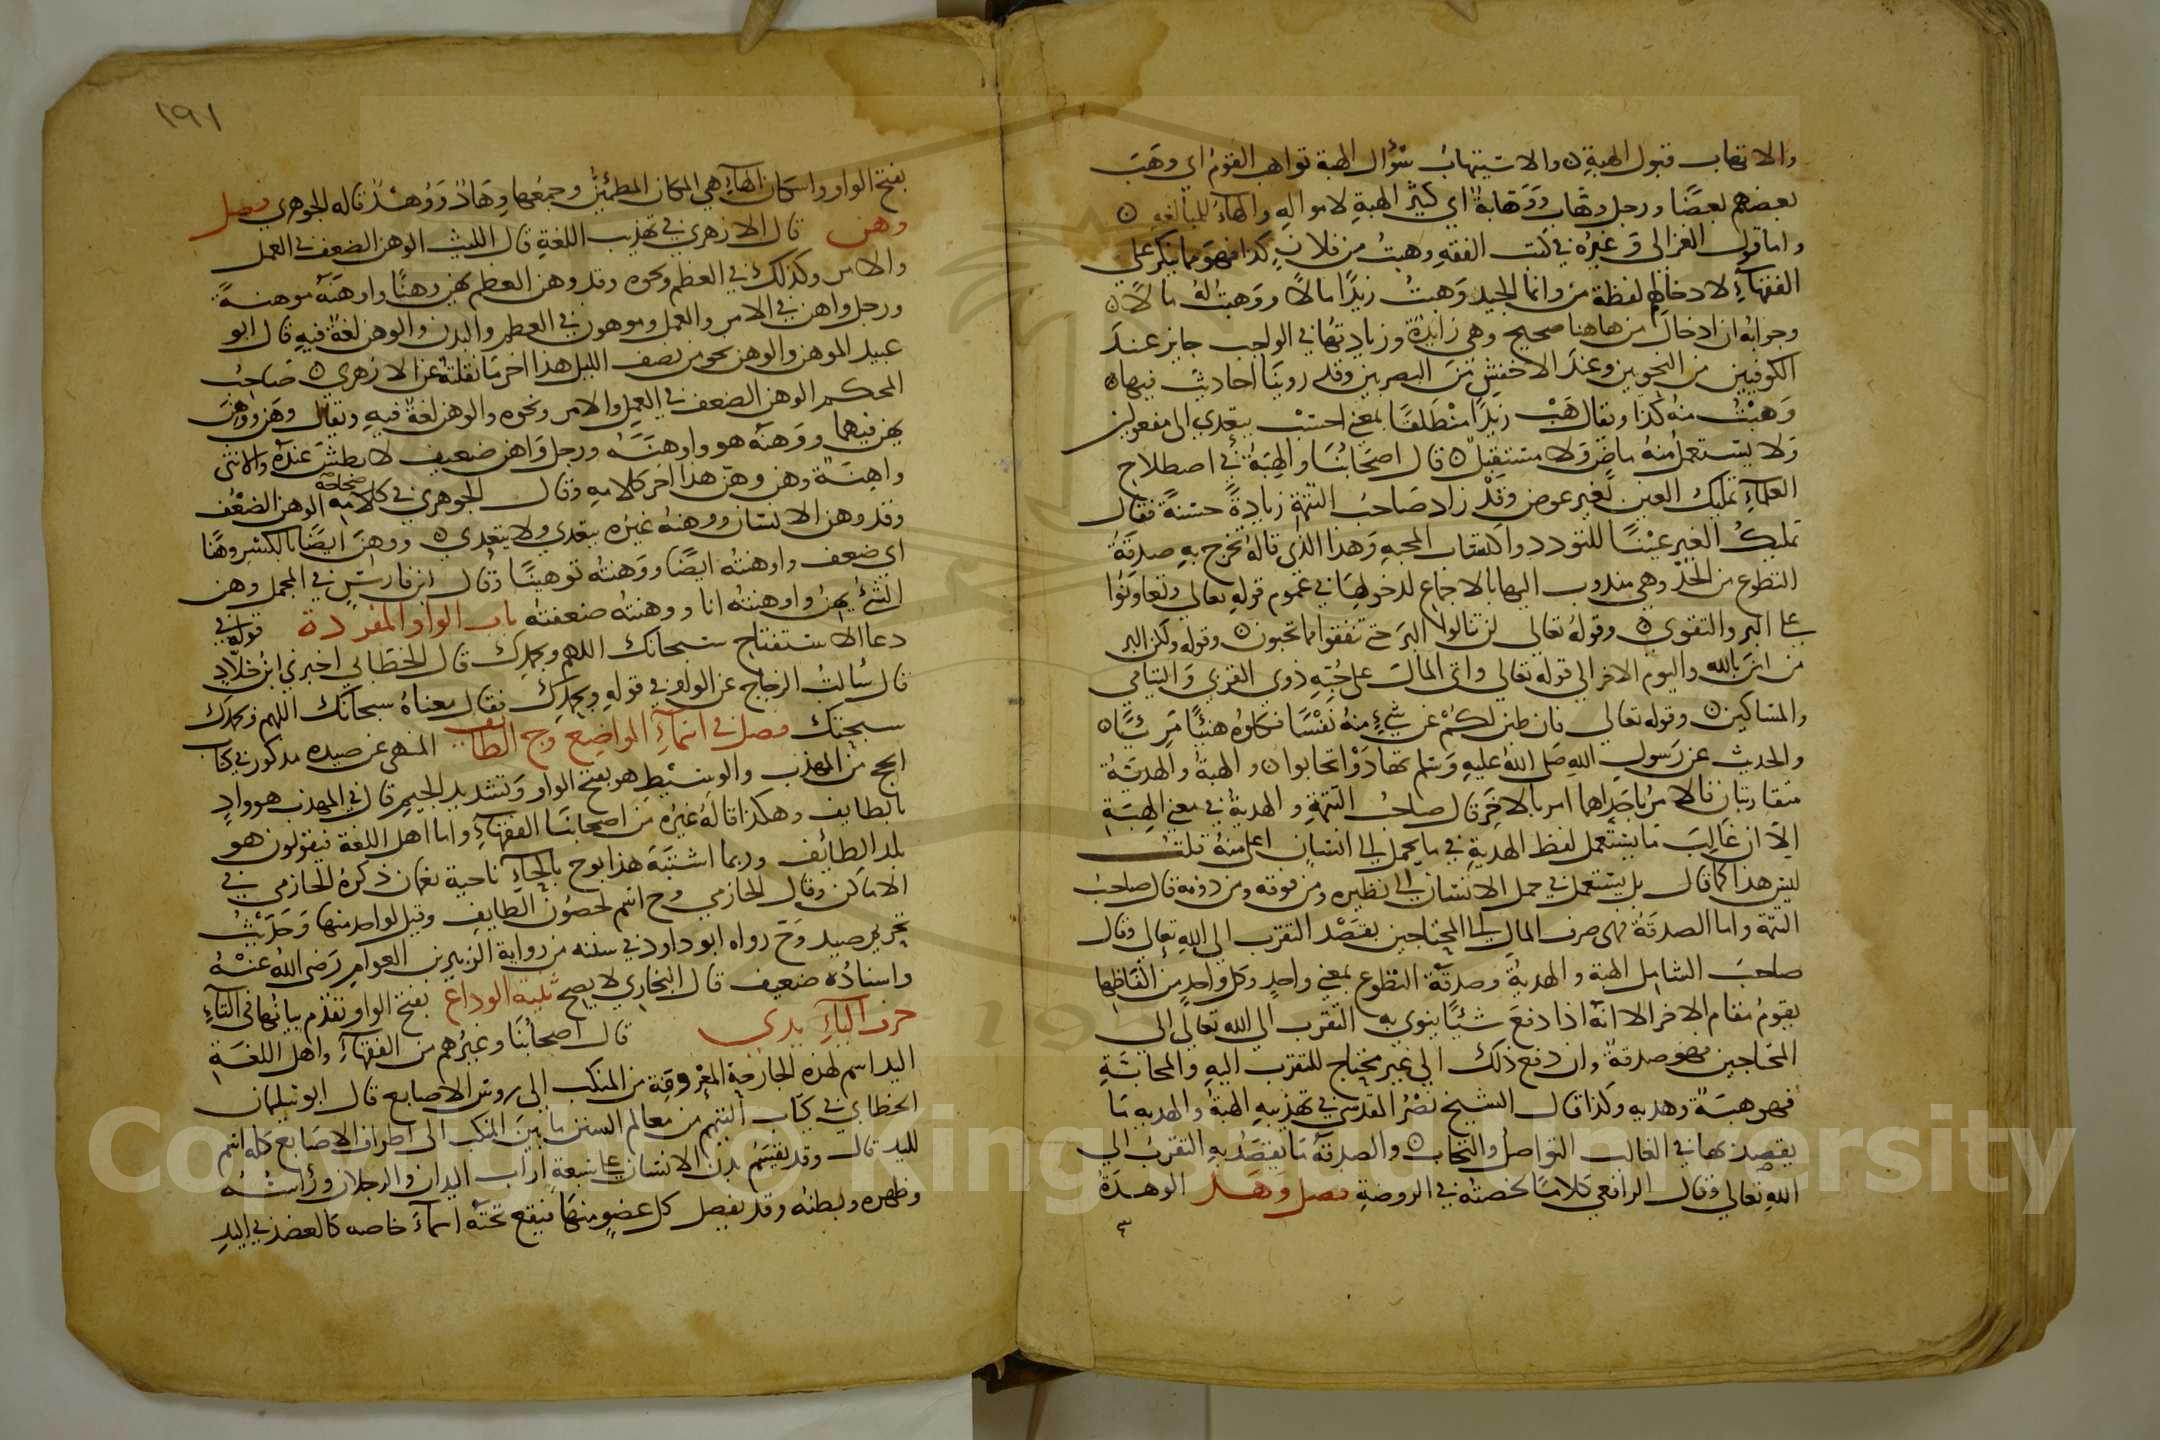 والاتهاب قبول الهبة ه والاستيهاب سؤال الهبة تواهب القوم اي وهب
بعضهم بعضا ورجل وهاب ووهابة اي كثير الهبة لامواله والهاء للمبالغه ه
واما قول الغزالي وغيره في كتب الفقه وهبت من فلان كذا فهو مما ينكر على
الفقهاء لادخالهم لفظة من وانما الجيد وهبت زيدا مالا ووهبت له مالا ه
وجوابه ان ادخال من هاهنا صحيح وهي زايدة وزيادتها في الواجب جايز عند
الكوفيين من النحويين وعند الاخفش من البصريين وقد روينا احاديث فيها ه
وهبت منه كذا ويقال هب زيدا منطلقا بمعنى احسب يتعدي الى مفعولين
ولا يستعمل منه ماض ولا مستقبل ه قال اصحابنا والهبة في اصطلاح
العلماء تمليك العين لغير عوض وقد زاد صاحب التتمة زيادة حسنة فقال
تمليك الغير عينا للتودد واكتساب المحبه وهذا الذي قاله تخرج به صدقة
التطوع من الحد وهي مندوب اليها بالاجماع لدخولها في عموم قوله تعالى وتعاونوا
على البر والتقوى ه وقوله تعالى لن تنالوا البر حتى تنفقوا مما تحبون ه وقوله ولكن البر
من امن بالله واليوم الاخر الى قوله تعالى واتى المال على حبه ذوي القربى واليتامى
والمساكين ه وقوله تعالى فان طبن لكم عن شيء منه نفسا فكلوه هنيئا مريئا ه
والحديث عن رسول الله صلى الله عليه وسلم تهادوا تحابوا ه والهبة والهدية
متقاربتان فالامر باحداهما امر بالاخر قال صاحب التتمة والهدية في معنى الهبة
الا ان غالب ما يستعمل لفظ الهدية في ما يحمل الى انسان اعلى منه قلت
ليس هذا كما قال بل يستعمل في حمل الانسان الى نظيره ومن فوقه ومن دونه قال صاحب
التتمة واما الصدقة فهي صرف المال الى المحتاجين بقصد التقرب الى الله تعالى وقال
صاحب الشامل الهبة والهدية وصدقة التطوع بمعنى واحد وكل واحد من الفاظها
يقوم مقام الاخر الا انه اذا دفع شيئا ينوي به التقرب الى الله تعالى الى
المحتاجين فهو صدقة وان دفع ذلك الى غير محتاج للتقرب اليه والمحابة
فهو هبة وهديه وكذا قال الشيخ نصر المقدسي في تهذيبه الهبة والهديه ما
يقصد بها في الغالب التواصل والتحاب ه والصدقة ما يقصد به التقرب الى
الله تعالى وقال الرافعي كلاما لخصته في الروضة فصل وهد الوهدة
١٩١
بفتح الواو واسكان الهاء هي المكان المطمئن وجمعها وهاد ووهد قاله الجوهري فصل
وهن قال الازهري في تهذيب اللغة قال الليث الوهن الضعف في العمل
والامر وكذلك في العظم ونحوه وقد وهن العظم يهن وهنا واوهنه موهنة
ورجل واهن في الامر والعمل وموهون في العظم والبدن والوهن لغة فيه قال ابو
عبيد الموهن والوهن نحو من نصف الليل هذا اخر ما نقلته عن الازهري ه صاحب
المحكم الوهن الضعف في العمل والامر ونحوه والوهن لغة فيه ويقال وهن ووهن
يهن فيهما ووهنه هو واوهنه ورجل واهن ضعيف لا بطش عنده والانثى
واهنة وهن وهن هذا اخر كلامه وقال الجوهري في كلامه صحاحه الوهن الضعف
وقد وهن الانسان ووهنه غيره يتعدي ولا يتعدي ه ووهن ايضا بالكسر وهنا
اي ضعف واوهنته ايضا ووهنته توهينا وقال ابن فارس في المجمل وهن
الشيء يهن واوهنته انا ووهنته ضعفته باب الواو المفردة قوله في
دعا الاستفتاح سبحانك اللهم وبحمدك قال الخطابي اخبرني ابن خلاد
قال سالت الزجاج عن الواو في قوله وبحمدك فقال معناه سبحانك اللهم وبحمدك
سبحتك فصل في اسماء المواضع وج الطائف المنهي عن صيده مذكور في كتاب
الحج من المهذب والوسيط هو بفتح الواو وتشديد الجيم قال في المهذب هو واد
بالطايف وهكذا قاله غيره من اصحابنا الفقهاء واما اهل اللغة فيقولون هو
بلد الطائف وربما اشتبه هذا بوح بالحاء ناحية نعمان ذكره الحازمي في
الاماكن وقال الحازمي وج اسم لحصون الطايف وقيل لواحد منها وحديث
تحريم صيد وج رواه ابو داود في سننه من رواية الزبير بن العوام رضي الله عنه
واسناده ضعيف قال البخاري لا يصح ثنية الوداع بفتح الواو تقدم بيانها في الثاء
حرف الياء يدي قال اصحابنا وغيرهم من الفقهاء واهل اللغة
اليد اسم لهذه الجارحة المعروفة من المنكب الى روس الاصابع قال ابو سليمان
الخطابي في كتاب التيمم من معالم السنن ما بين المنكب الى اطراف الاصابع كله اسم
لليد قال وقد يقسم بدن الانسان على سبعة اراب اليدان والرجلان وراسه
وظهره وبطنه وقد يفصل كل عضو منها فيقع تحته اسماء خاصه كالعضد في اليد
Copyright © King Saud University